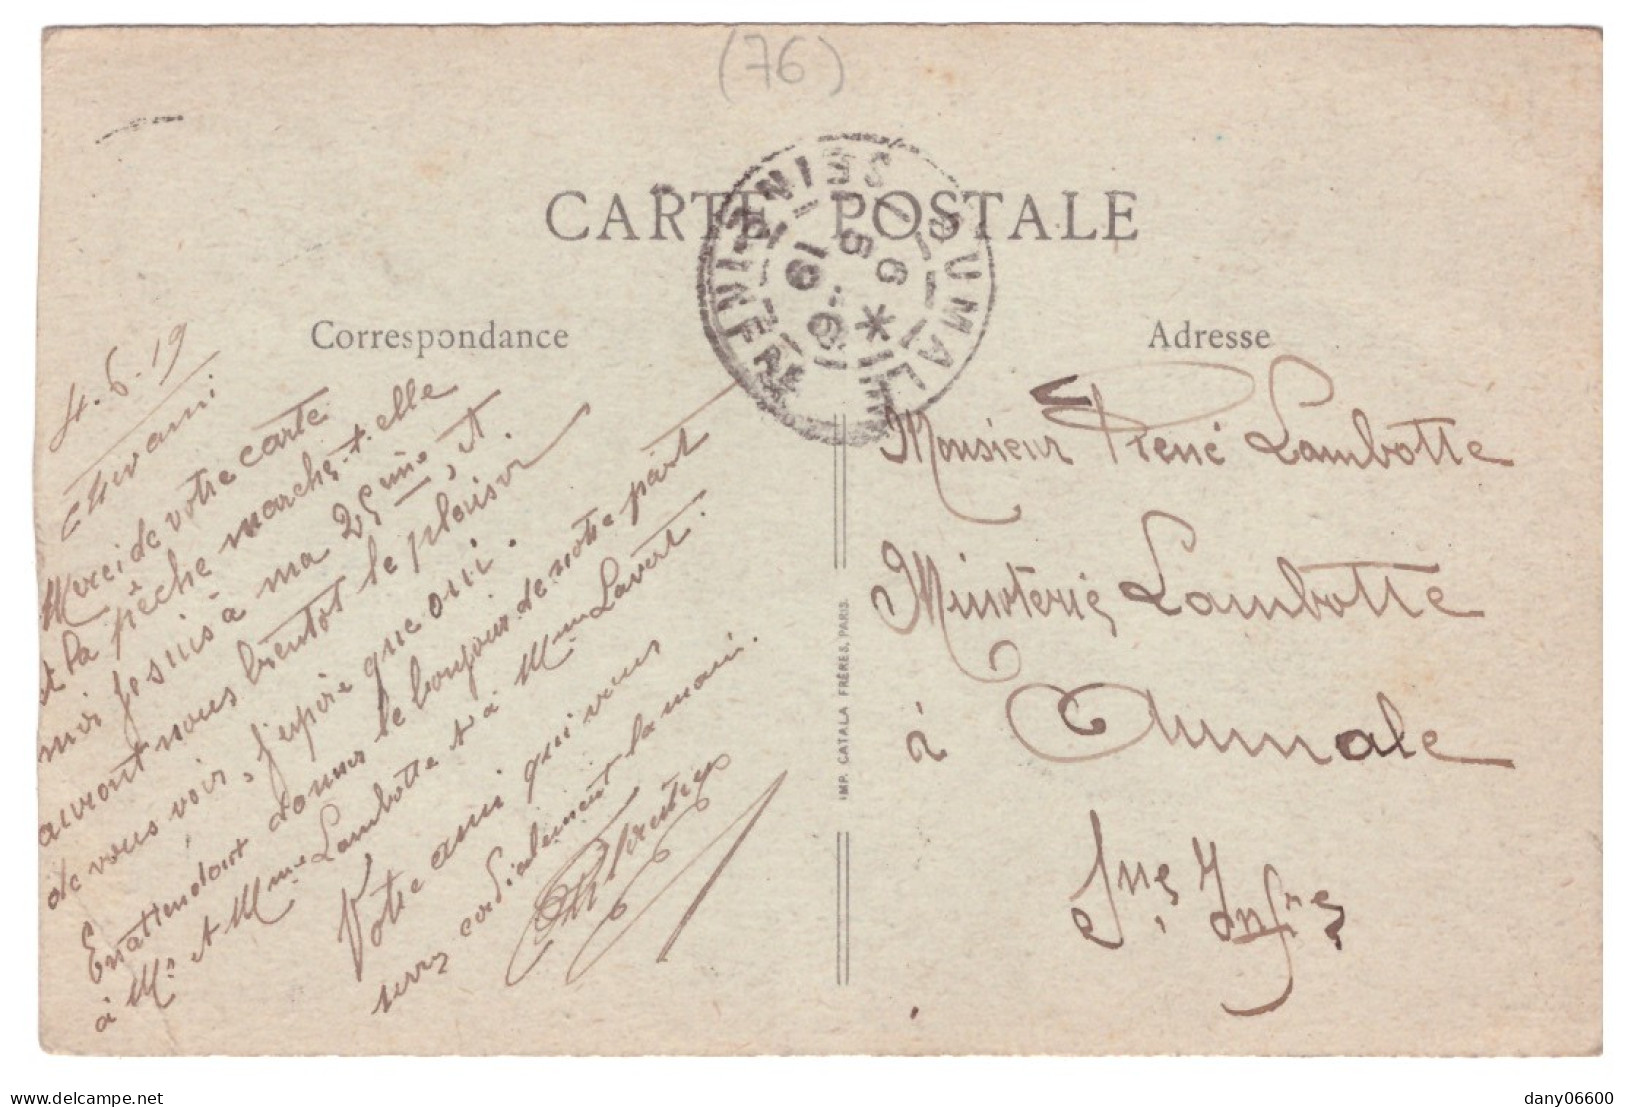 (76)
CARTE POSTALE
AUMALE
SEINE-INFRE
6
5 - 6
19
Correspondance
Adresse
4-6-19
Cher ami
Merci de votre carte
et la pêche marche-t-elle
moi je suis à ma 25ème, et
auront nous bientot le plaisir
de vous voir, j'espère que oui.
En attendant donner le bonjour de notre part
à Mr et Mme Lambotte et à Mme Lavert.
Votre ami qui vous
serre cordialement la main.
Monsieur René Lambotte
Minoterie Lambotte
à Aumale
Sne Infre
IMP. CATALA FRÈRES, PARIS.
delcampe.net
dany06600